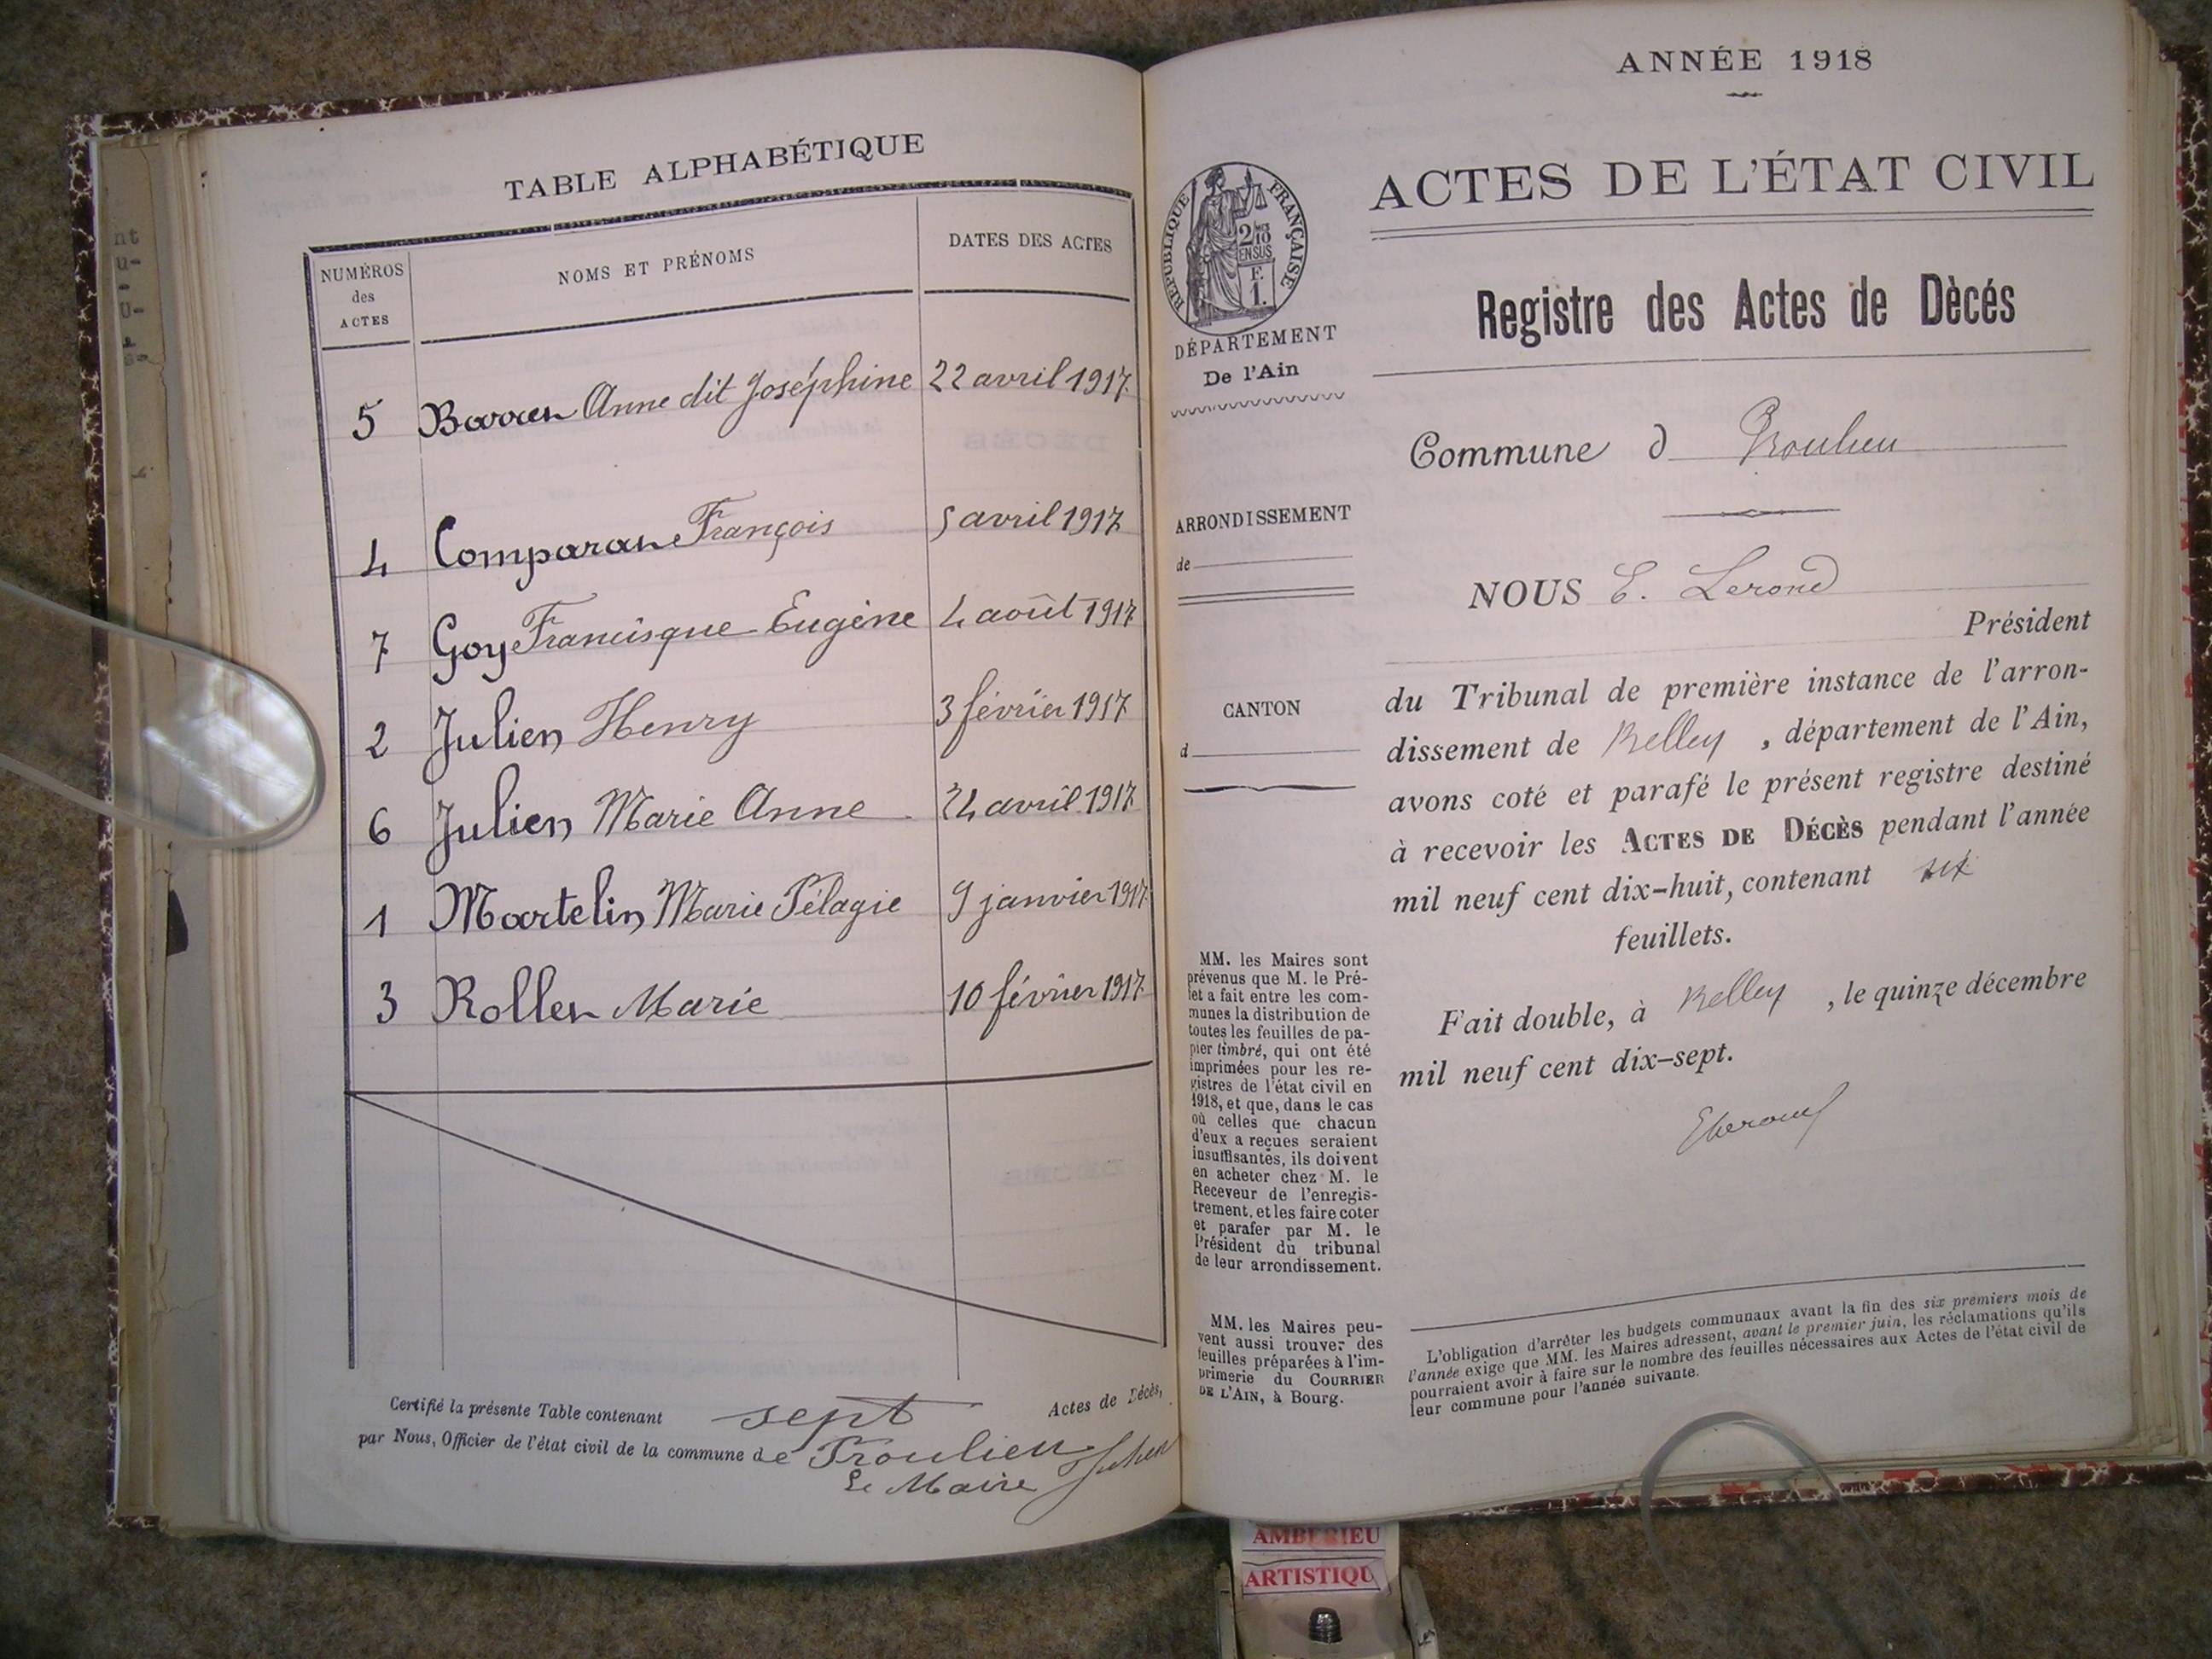 TABLE ALPHABÉTIQUE
NUMÉROS
des
ACTES
NOMS ET PRÉNOMS
DATES DES ACTES
5 Barran Anne dit Joséphine 22 avril 1917
4 Comparan François 5 avril 1917
7 Goy Francisque Eugène 4 août 1917
2 Julien Henry 3 février 1917
6 Julien Marie Anne 24 avril 1917
1 Martelin Marie Pélagie 9 janvier 1917
3 Rollen Marie 10 février 1917
Certifié la présente Table contenant sept Actes de Décès,
par Nous, Officier de l'état civil de la commune de Proulieu
Le Maire
ANNÉE 1918
ACTES DE L'ÉTAT CIVIL
RÉPUBLIQUE FRANÇAISE
2/10
EN SUS
F.
1.
DÉPARTEMENT
De l'Ain
ARRONDISSEMENT
de
CANTON
d
MM. les Maires sont
prévenus que M. le Pré-
fet a fait entre les com-
munes la distribution de
toutes les feuilles de pa-
pier timbré, qui ont été
imprimées pour les re-
gistres de l'état civil en
1918, et que, dans le cas
où celles que chacun
d'eux a reçues seraient
insuffisantes, ils doivent
en acheter chez M. le
Receveur de l'enregis-
trement, et les faire coter
et parafer par M. le
Président du tribunal
de leur arrondissement.
MM. les Maires peu-
vent aussi trouver des
feuilles préparées à l'im-
primerie du COURRIER
DE L'AIN, à Bourg.
Registre des Actes de Dècés
Commune d Proulieu
NOUS E. Lerond
Président
du Tribunal de première instance de l'arron-
dissement de Belley, département de l'Ain,
avons coté et parafé le présent registre destiné
à recevoir les ACTES DE DÉCÈS pendant l'année
mil neuf cent dix-huit, contenant six
feuillets.
Fait double, à Belley, le quinze décembre
mil neuf cent dix-sept.
L'obligation d'arrêter les budgets communaux avant la fin des six premiers mois de
l'année exige que MM. les Maires adressent, avant le premier juin, les réclamations qu'ils
pourraient avoir à faire sur le nombre des feuilles nécessaires aux Actes de l'état civil de
leur commune pour l'année suivante.
AMBERIEU
ARTISTIQU